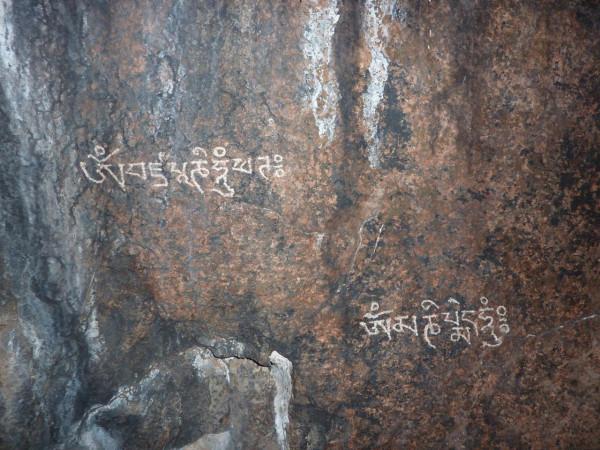 ༀབཛྲཔཱཎིཧཱུྃཕཊ༔
ༀམཎིཔདྨེཧཱུྃ༔